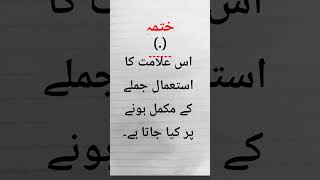 ختمہ
(.)
اس علامت کا
استعمال جملے
کے مکمل ہونے
پر کیا جاتا ہے۔